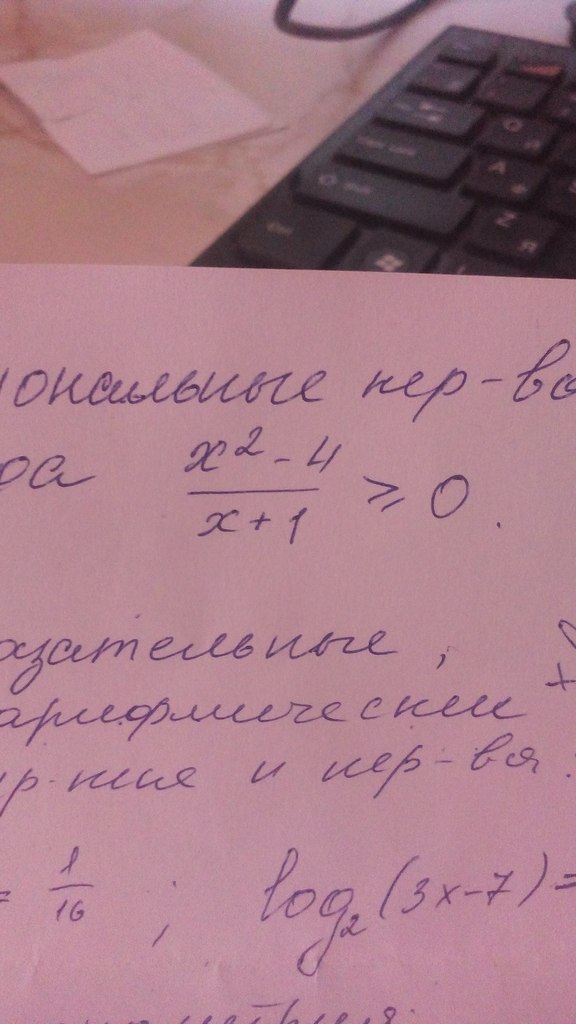 иональные нер-во
да x² - 4 / x + 1 ⩾ 0.
казательные,
арифмические
ур-ния и нер-ва
= 1/16 ; log₂(3x-7)=